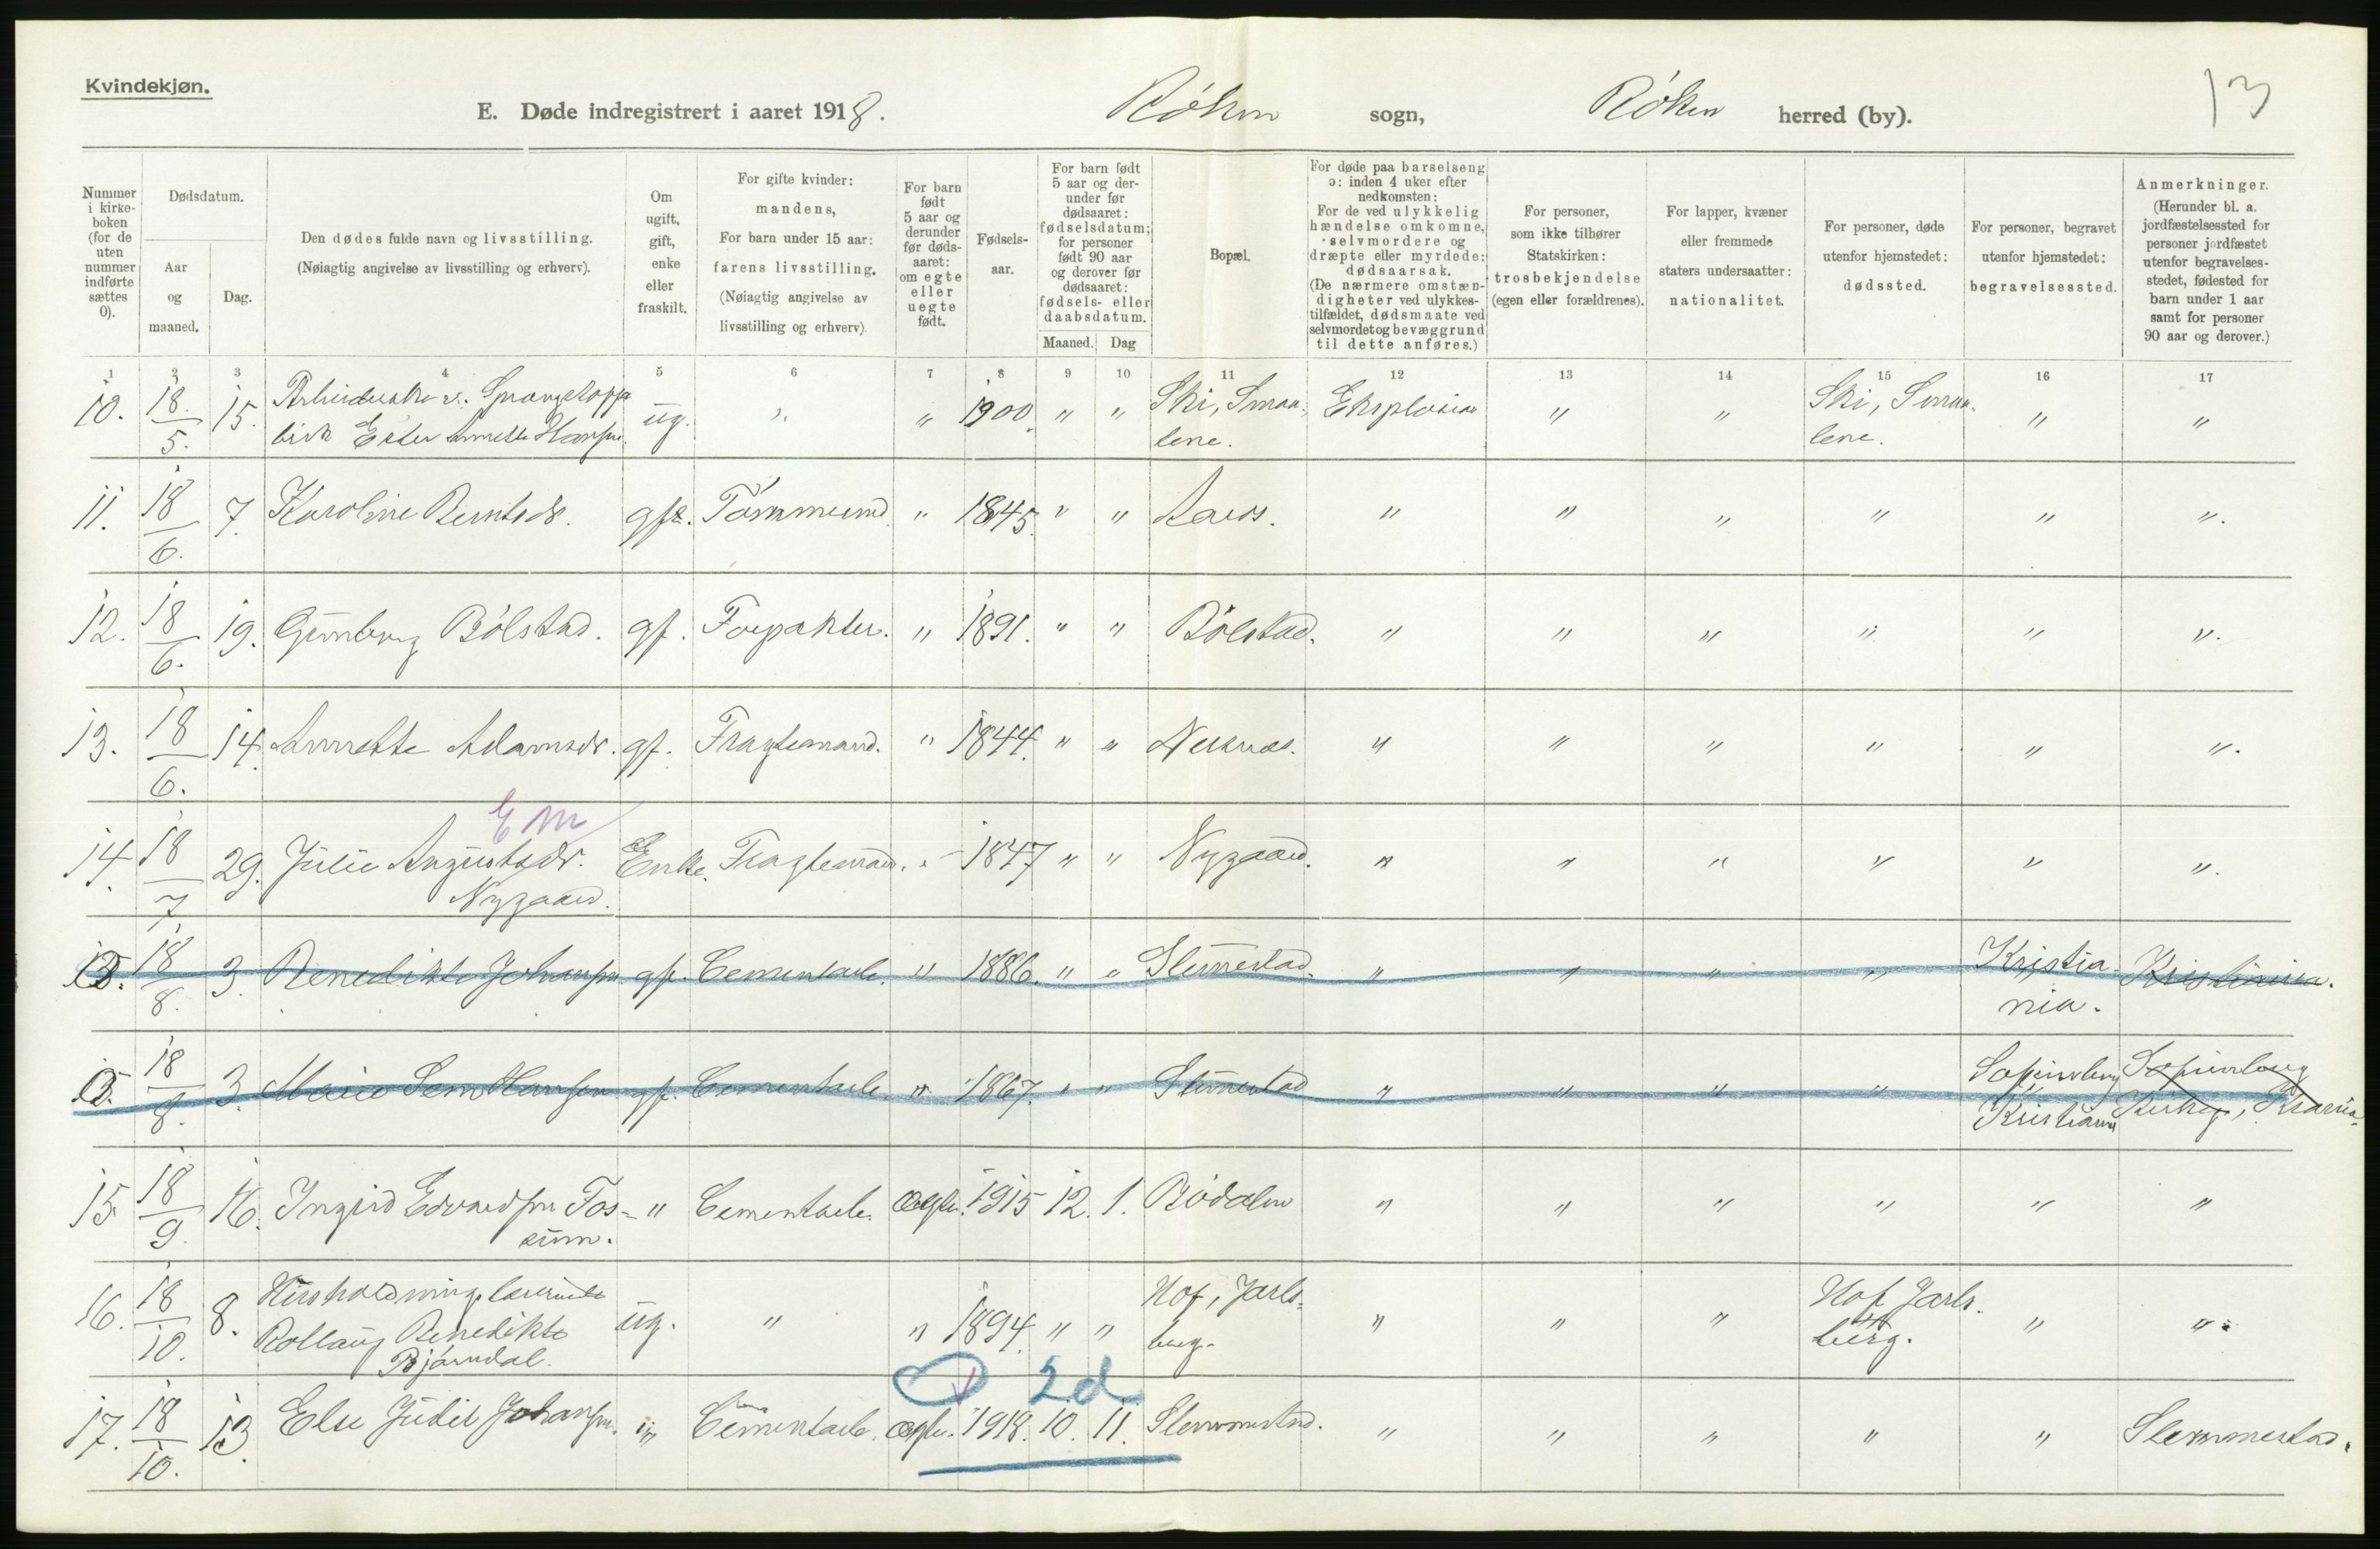 Kvindekjøn.
13
E. Døde indregistrert i aaret 1918. Røken sogn, Røken herred (by).
Nummer i kirke-boken (for de uten nummer indførte sættes 0).
Dødsdatum.
Aar og maaned.
Dag.
Den dødes fulde navn og livsstilling.
(Nøiagtig angivelse av livsstilling og erhverv).
Om ugift, gift, enke eller fraskilt.
For gifte kvinder: mandens,
For barn under 15 aar: farens livsstilling.
(Nøiagtig angivelse av livsstilling og erhverv)
For barn født 5 aar og derunder før døds-aaret: om egte eller uegte født.
Fødsels-aar.
For barn født 5 aar og der-under før dødsaaret: fødselsdatum; for personer født 90 aar og derover før dødsaaret: fødsels- eller daabsdatum.
Maaned. Dag
Bopæl.
For døde paa barselseng ɔ: inden 4 uker efter nedkomsten:
For de ved ulykkelig hændelse omkomne, selvmordere og dræpte eller myrdede: dødsaarsak.
(De nærmere omstæn-digheter ved ulykkes-tilfældet, dødsmaate ved selvmordet og bevæggrund til dette anføres.)
For personer, som ikke tilhører Statskirken: trosbekjendelse (egen eller forældrenes).
For lapper, kvæner eller fremmede staters undersaatter: nationalitet.
For personer, døde utenfor hjemstedet: dødssted.
For personer, begravet utenfor hjemstedet: begravelsessted.
Anmerkninger.
(Herunder bl. a. jordfæstelsessted for personer jordfæstet utenfor begravelses-stedet, fødested for barn under 1 aar samt for personer 90 aar og derover.)
1 2 3 4 5 6 7 8 9 10 11 12 13 14 15 16 17
10. 18/5. 15. Ester Annette Hansen ug. " " 1900. " " Ski, Smaa-lene. Eksplosion " " Ski, Smaa-lene. " "
11. 18/6. 7. Karoline Berntsdr. gft. Tømmermd. " 1845. " " " " " " " ".
12. 18/6. 19. Gunborg Bølstad. gf. Forpakter. " 1891. " " Bølstad. " " " " " ".
13. 18/6. 14. Annette Adamsdr. gf. Fragtemand. " 1844. " " Næsnæs. " " " " " ".
EM
14. 18/7. 29. Julie Augustsdr. Nygaard. Enke. Fragtemand. " 1847 " " Nygaard. " " " " " ".
15. 18/8. 3. Benedikte Johansen gf. Cementarb. " 1886. " " Slemmestad. " " " " Kristia-nia. Kristiania.
15. 18/8. 3. Marie Hansen gf. Cementarb. " 1867. " " Slemmestad " " " " Sofienberg Kristiania Sofienberg Kirkeg., Kr.ania.
15 18/9. 16. Ingrid Edvardsen Fos-sum. " Cementarb. ægte. 1915 12. 1. Bødalen " " " " " "
16. 18/10. 8. Husholdningslærerinde Rollaug Benedikte Bjørndal. ug. " " 1894. " " Hof, Jarls-berg. " " " Hof Jarls-berg. " ".
2d
17. 18/10. 13. Else Judit Johansen. " Cementarb. ægte. 1918. 10. 11. Slemmestad. " " " " " Slemmestad.